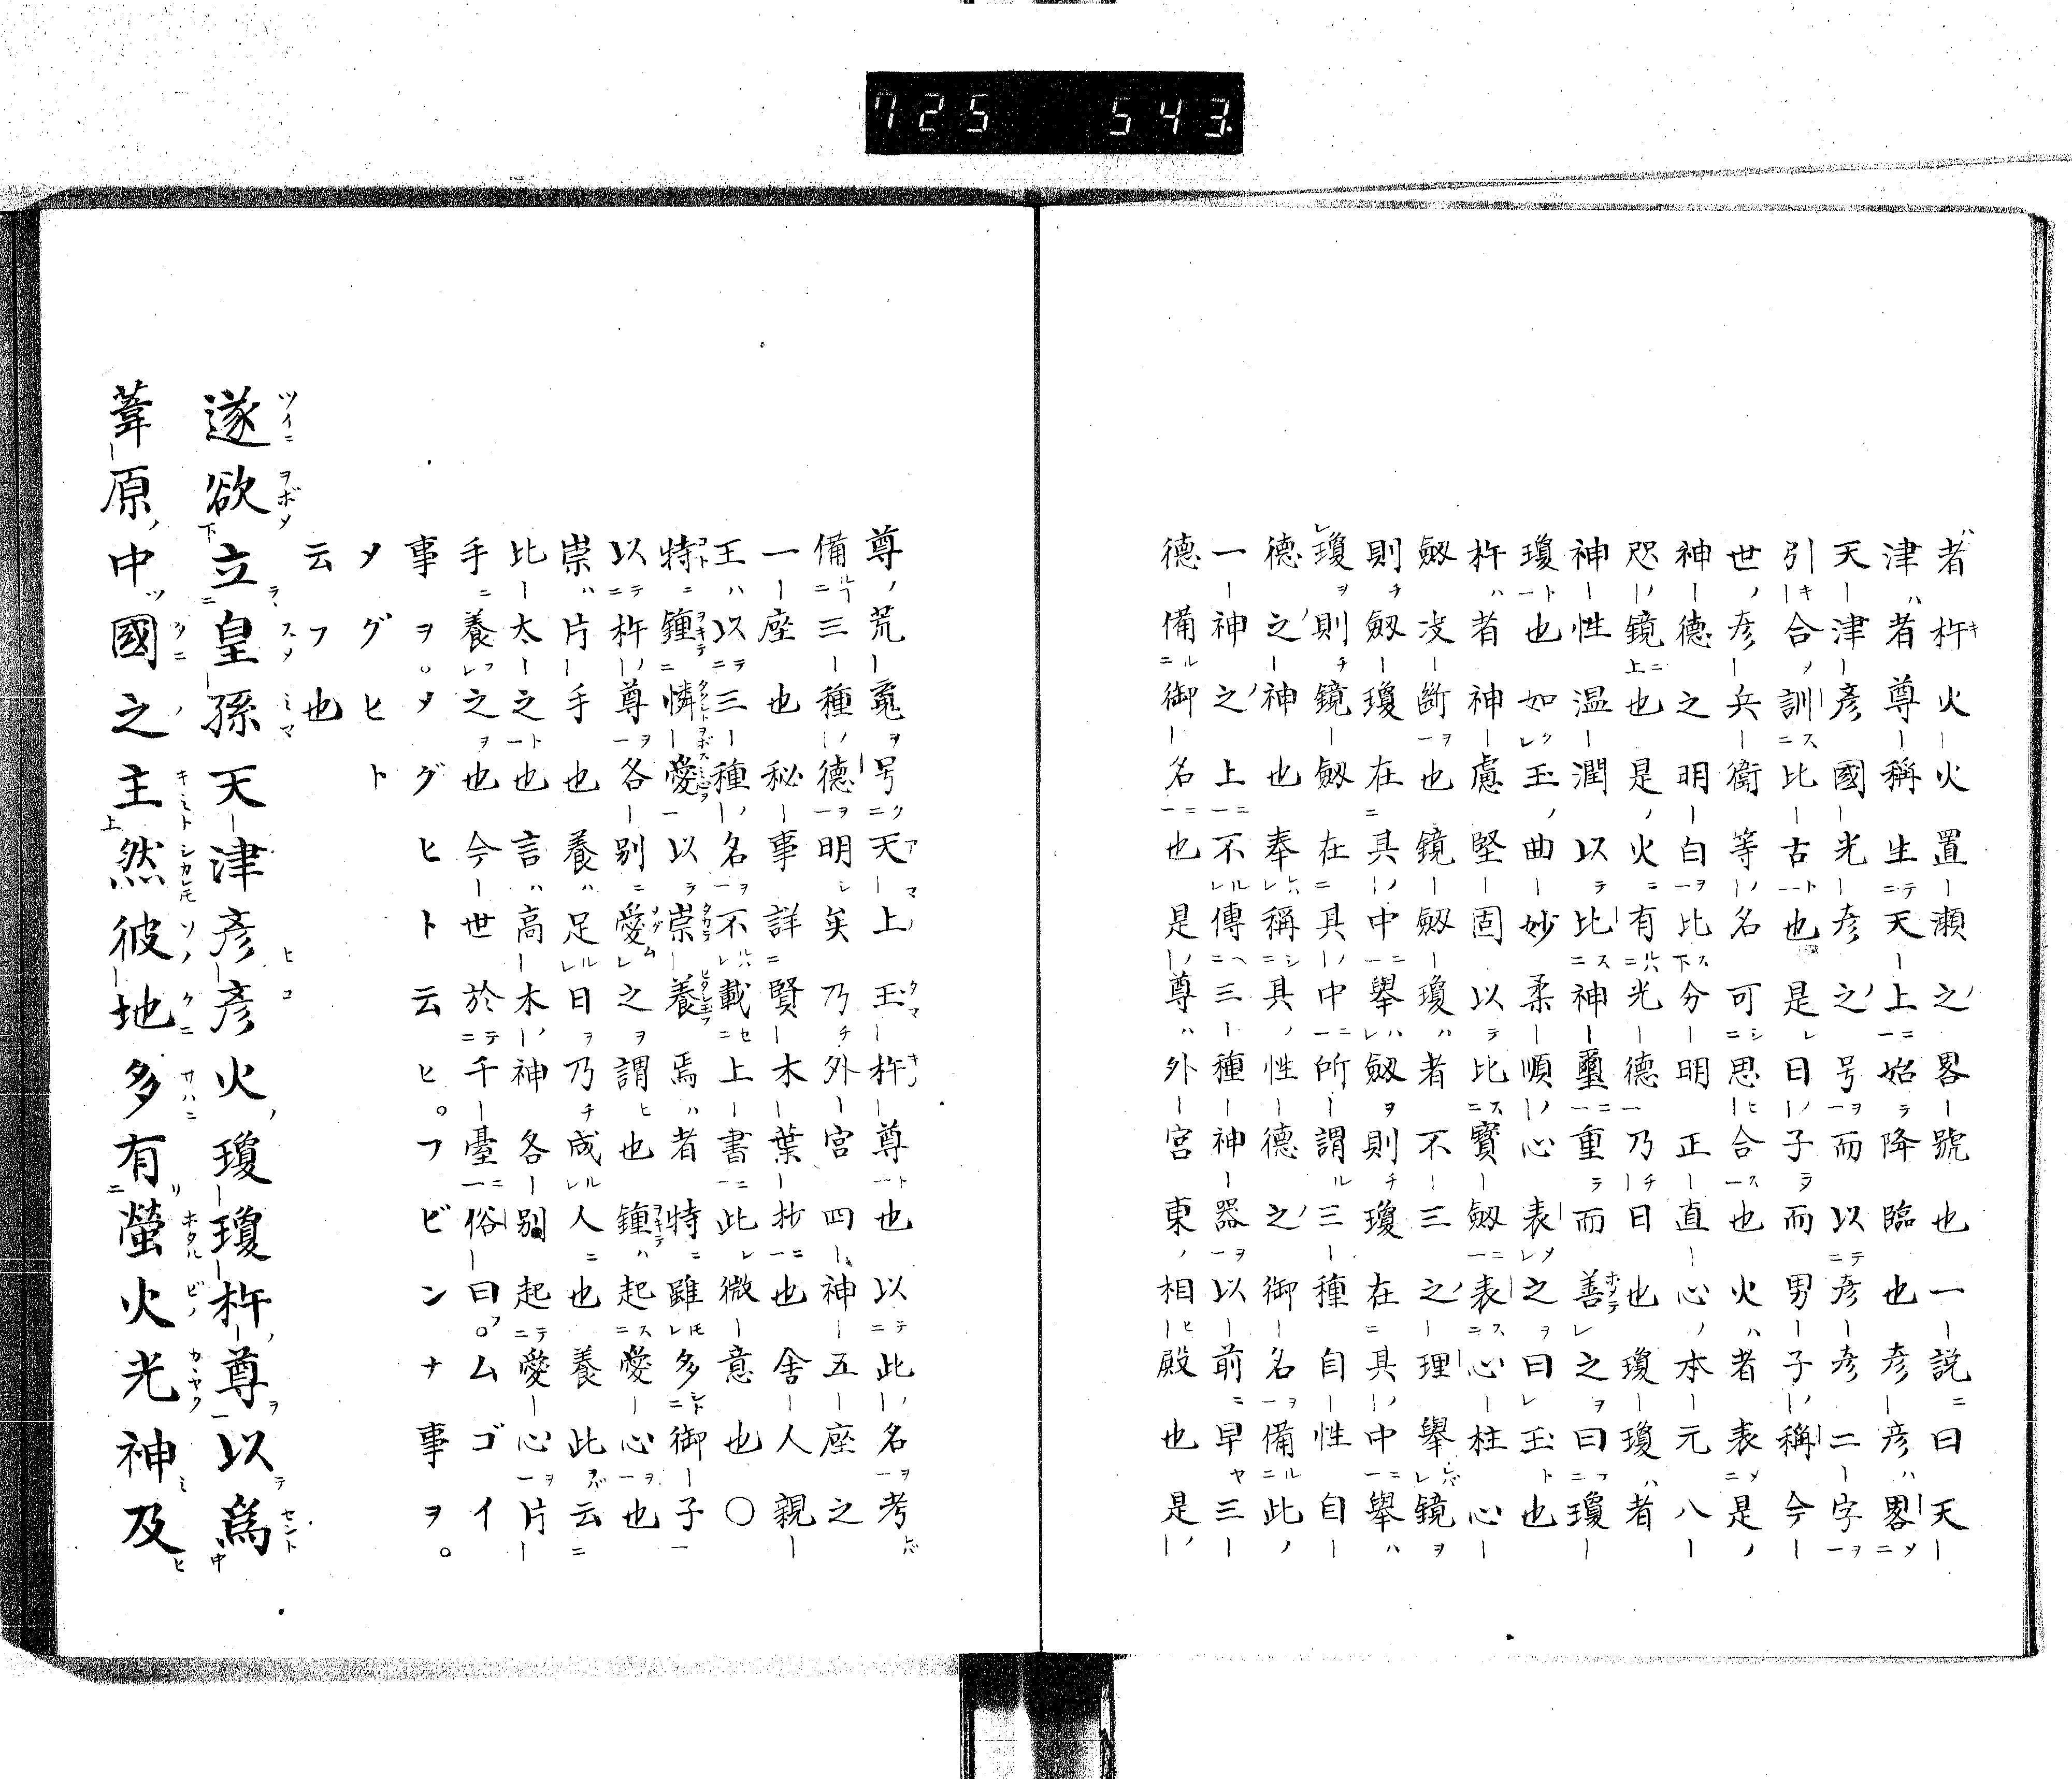 725 543
者杵火火置瀬之畧號也一説曰天
津者尊稱生天上始降臨也彦彦畧
天津彦國光彦之号而以彦彦二字
引合訓比古也是日子而男子稱今
世彦兵衛等名可思合也火者表是
神德之明白比分明正直心本元八
咫鏡也是火有光德乃曰也瓊瓊者
神性温潤以比神璽重而善之曰瓊
瓊也如玉曲妙柔順心表之曰玉也
杵者神慮堅固以比寳劔表心柱心
劔決断也鏡劔瓊者不三之理舉鏡
則劔瓊在其中舉劔則瓊在其中舉
瓊則鏡劔在其中所謂三種自性自
德之神也奉稱其性德之御名備此
一神之上不傳三種神器以前早三
德備御名也是尊外宮東相殿也是
尊荒䰟号天上玉杵尊也以此名考
備三種德明矣乃外宮四神五座之
一座也秘事詳賢木葉抄也舎人親
王以三種名不載上書此微意也〇
特鍾憐愛以崇養焉者特雖多御子
以杵尊各別愛之謂也鍾起愛心也
崇片手也養足日乃成人也養此云
比太之也言高木神各別起愛心片
手養之也今世於千臺俗曰ムゴイ
事ヲ。メグヒト云ヒ。フビンナ事ヲ。
メグヒト
云フ也
遂欲立皇孫天津彦彦火瓊瓊杵尊以爲
葦原中國之主然彼地多有螢火光神及